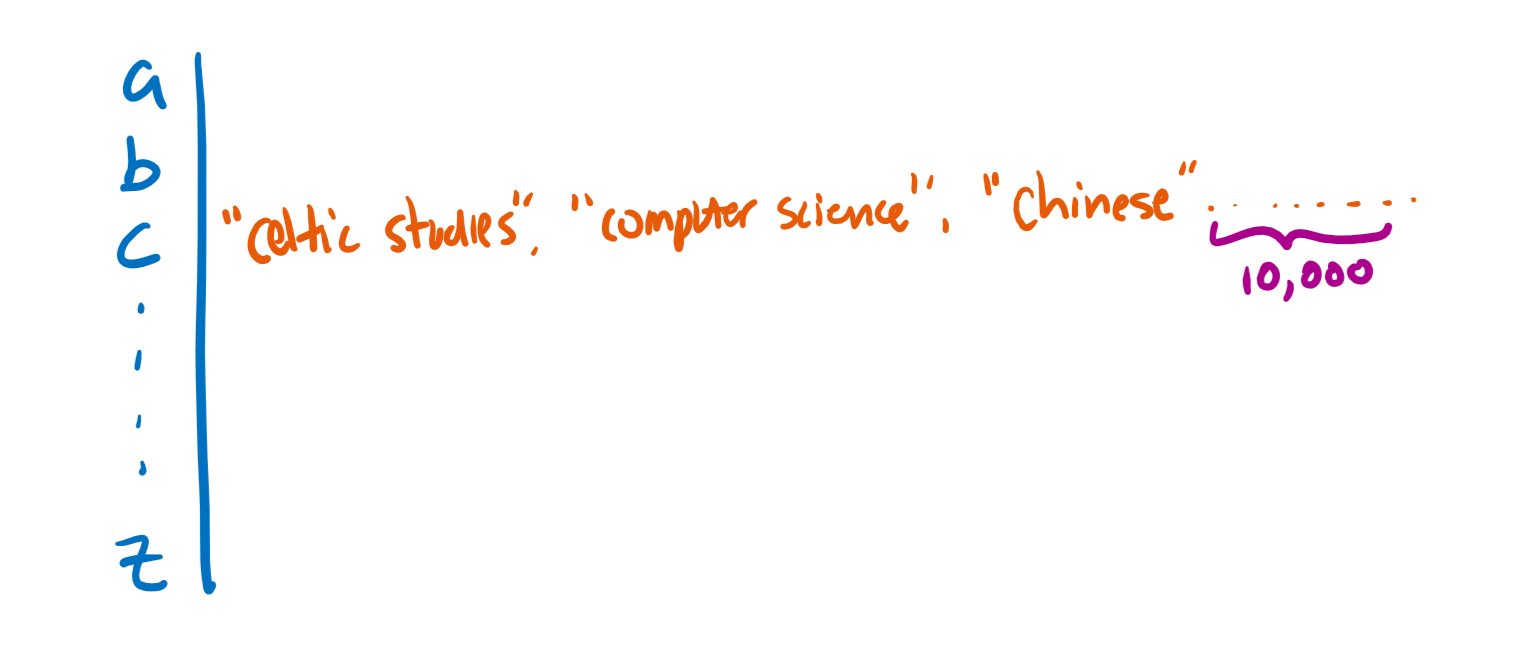 a
b
c "celtic studies", "computer science", "Chinese" ........
10,000
.
.
.
.
z